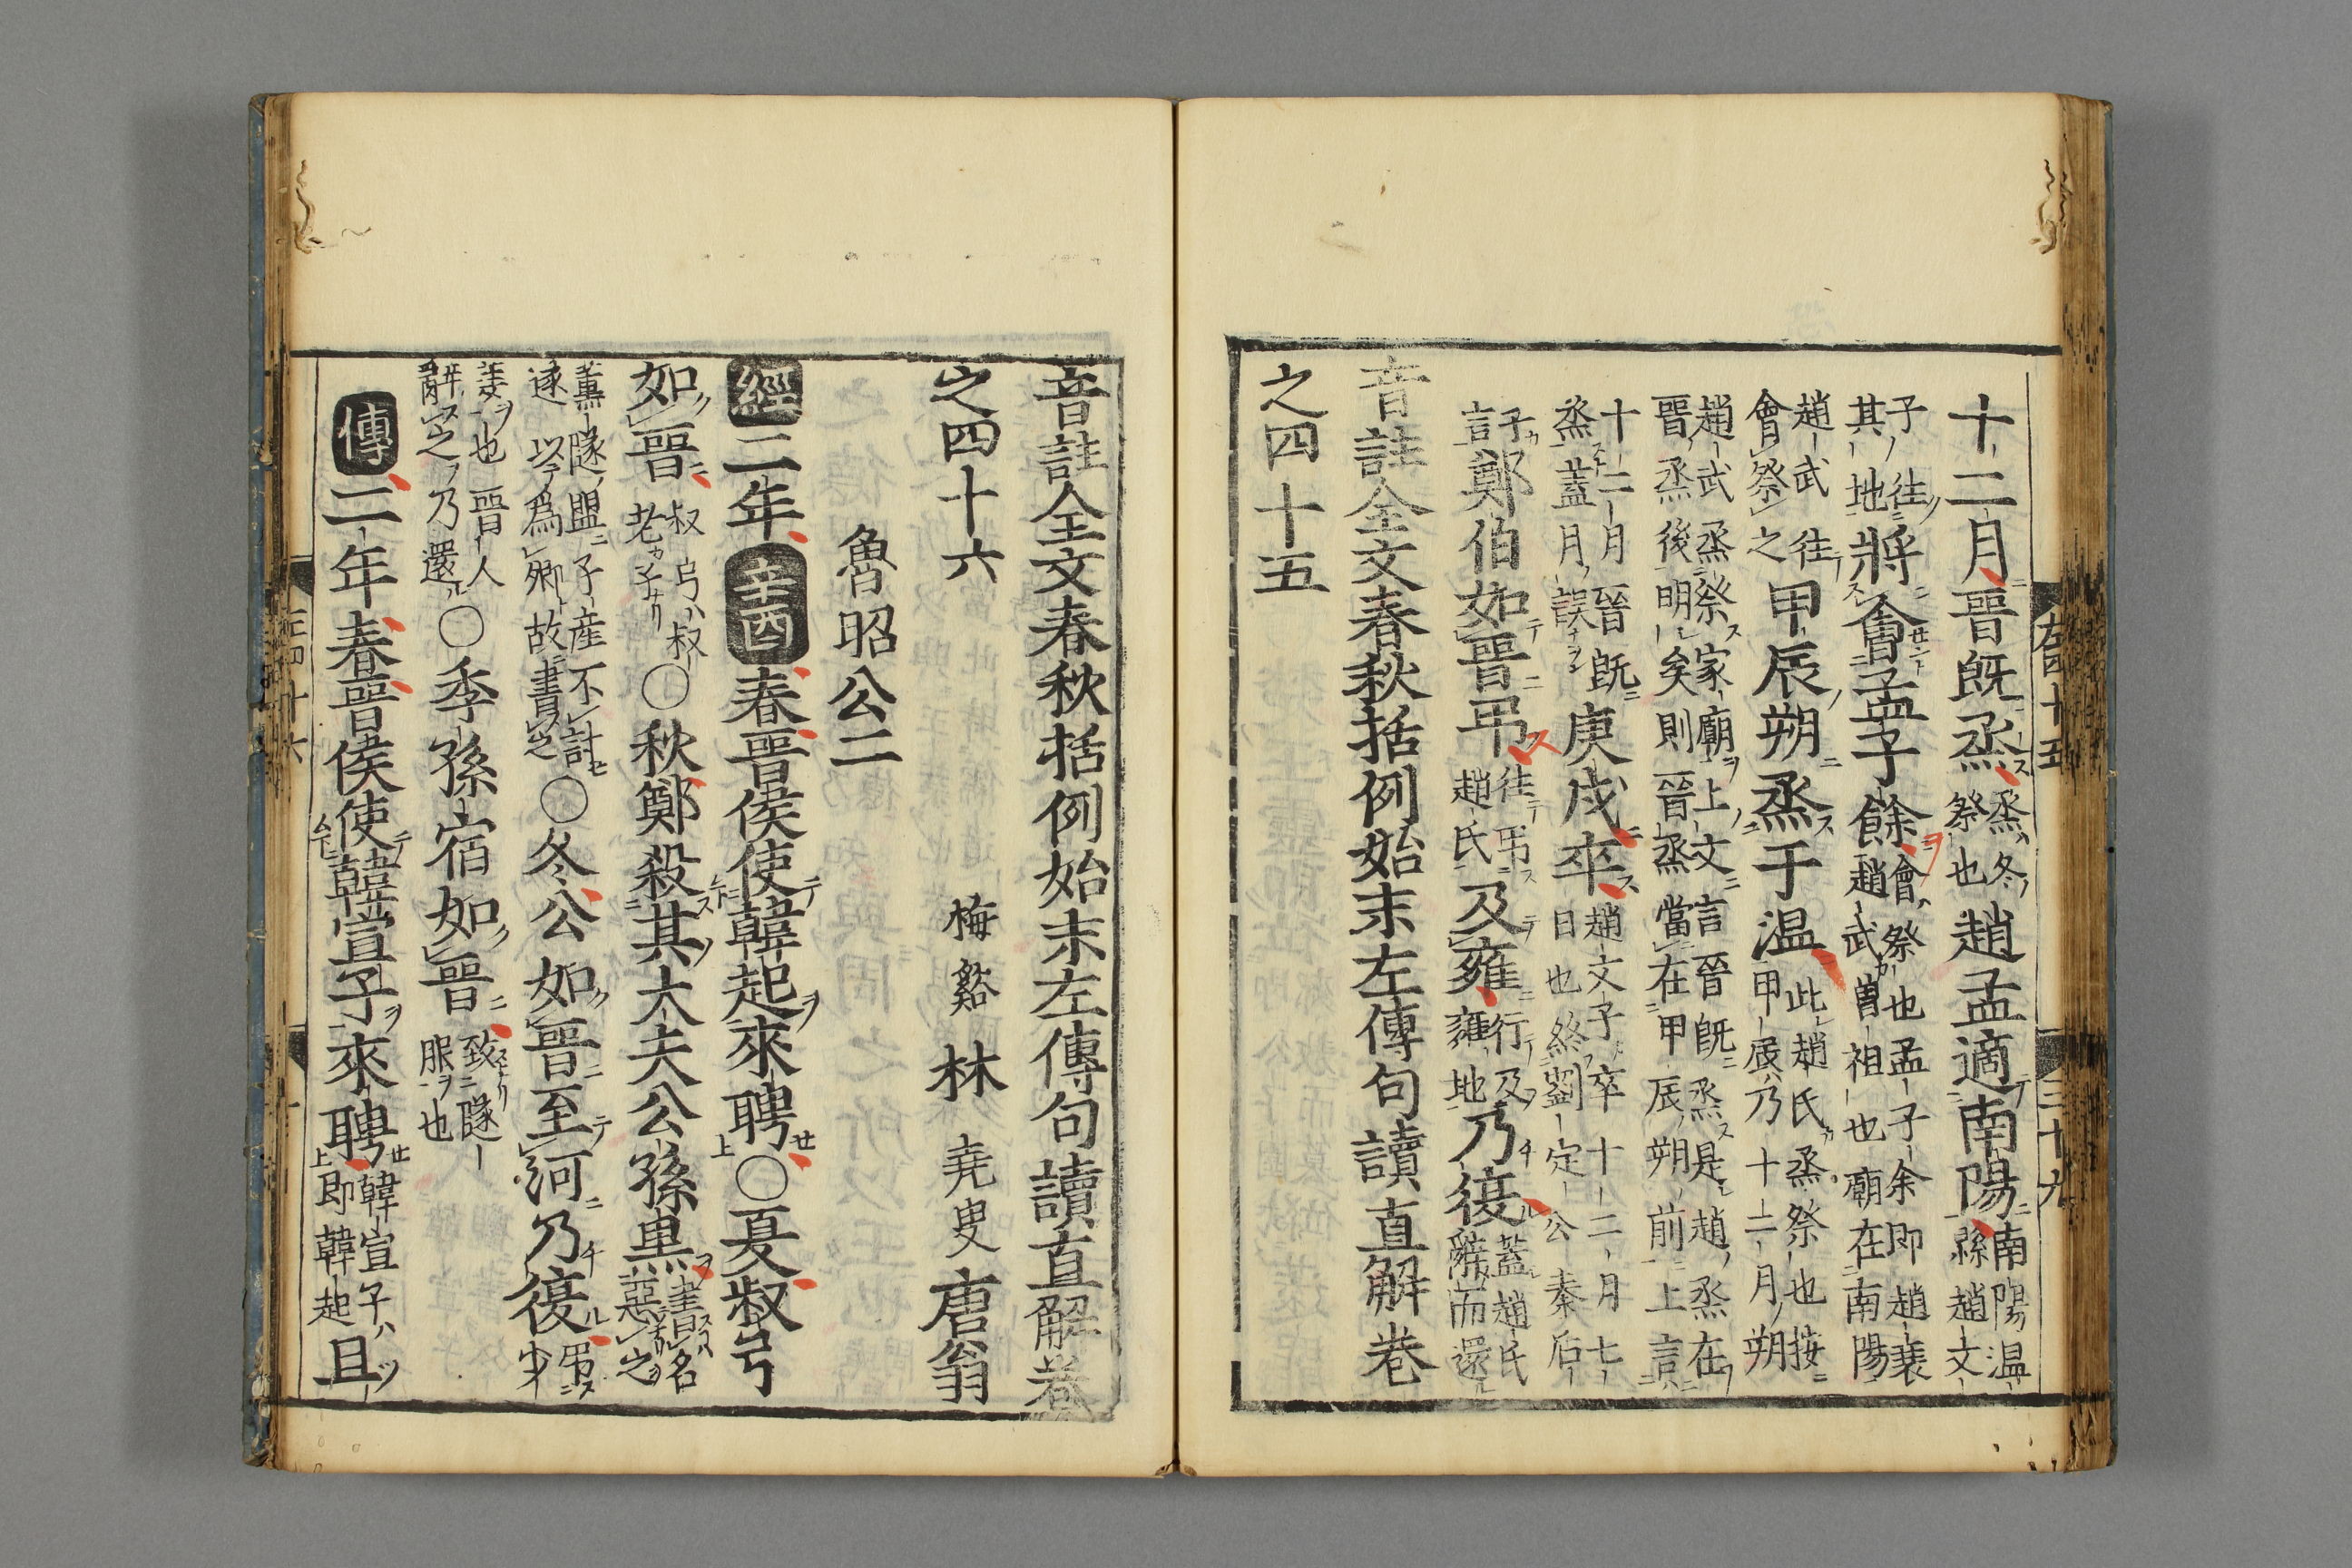 十二月晋既烝烝冬祭也趙孟適南陽南陽温縣趙文
子往其地將會孟子餘會祭也孟子余即趙衰趙武曽祖也廟在南陽
趙武往會祭之甲辰朔烝于温此趙氏烝祭也按甲辰乃十二月朔
趙武烝祭家廟上文言晉既烝是趙烝在晋烝後明矣則晉烝當在甲辰朔前上言
十二月晉既烝蓋月誤庚戌卒趙文子卒十二月七日也終劉定公秦后
子言鄭伯如晋弔往弔趙氏及雍行及雍地乃復蓋趙氏辭而還
音註全文春秋括例始末左傳句讀直解卷
之四十五
左四十五
三十九
音註全文春秋括例始末左傳句讀直解卷
之四十六
梅谿林堯叟唐翁
魯昭公二
經二年辛酉春晋侯使韓起來聘○夏叔弓
如晋叔弓叔老子○秋鄭殺其大夫公孫黒書名惡之
薫隧盟子産不討遂以爲卿故書之○冬公如晋至河乃復弔少
姜也晋人辭之乃還○季孫宿如晋致隧服也
傳二年春晋侯使韓宣子來聘韓宣子即韓起且
左四十六
一